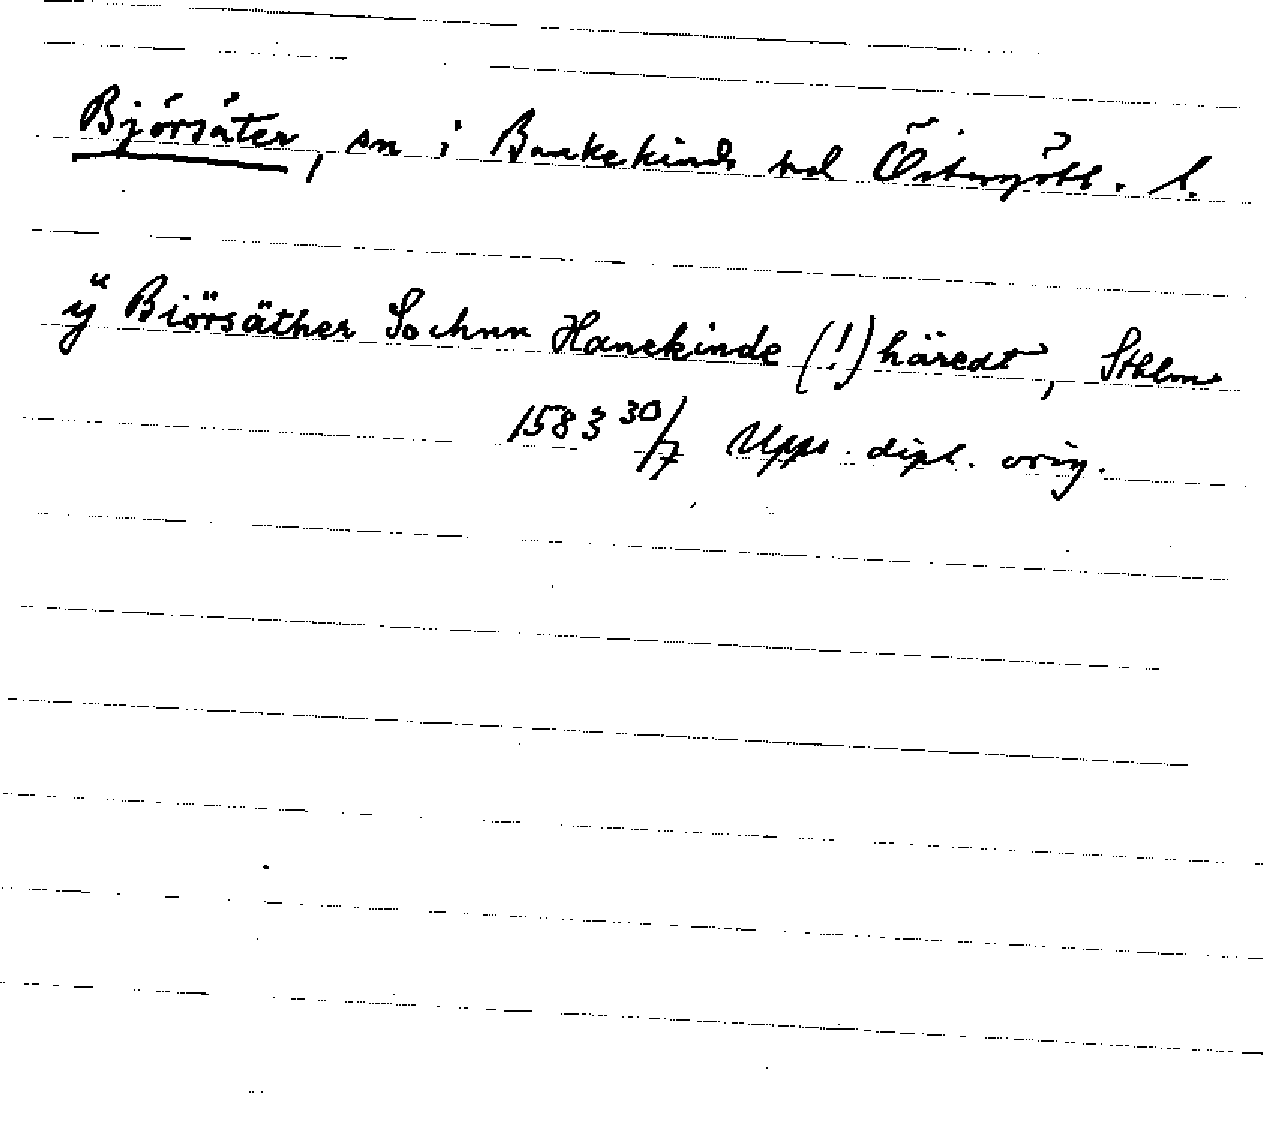 Björsäter, sn i Bankekinds hd Östergötl. l.
ÿ Biörsäther Sochnn Hanekinde (!) häredt, Sthlm
1583 30/7 Upps. dipl. orig.